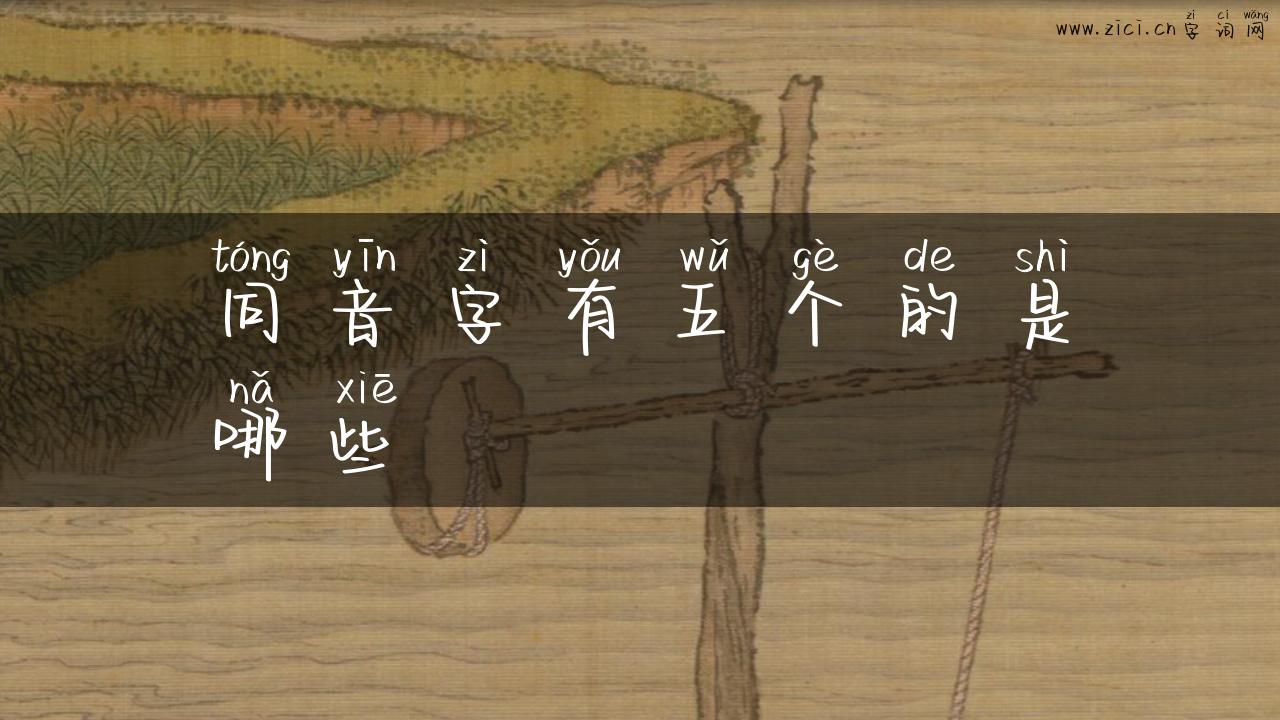 zì cí wǎng
www.zici.cn字词网
tóng yīn zì yǒu wǔ gè de shì
同音字有五个的是
nǎ xiē
哪些